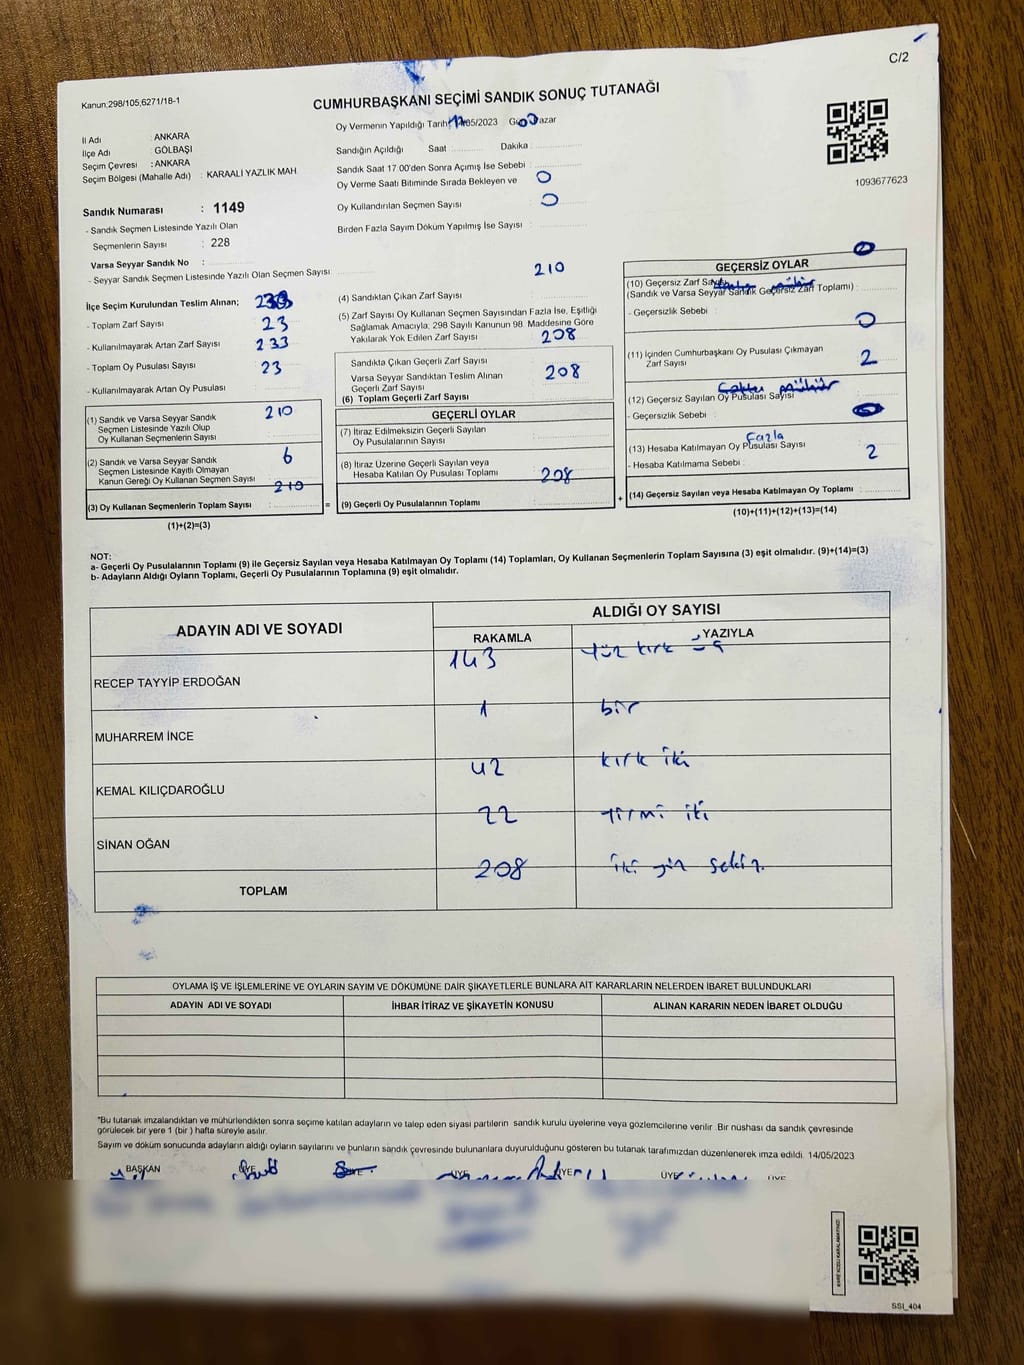 C/2
Kanun:298/105,6271/18-1
CUMHURBAŞKANI SEÇİMİ SANDIK SONUÇ TUTANAĞI
İl Adı : ANKARA
İlçe Adı : GÖLBAŞI
Seçim Çevresi : ANKARA
Seçim Bölgesi (Mahalle Adı) : KARAALİ YAZLIK MAH
Sandık Numarası : 1149
- Sandık Seçmen Listesinde Yazılı Olan
Seçmenlerin Sayısı : 228
Varsa Seyyar Sandık No :
- Seyyar Sandık Seçmen Listesinde Yazılı Olan Seçmen Sayısı
Oy Vermenin Yapıldığı Tarih /05/2023
Sandığın Açıldığı Saat Dakika
Sandık Saat 17.00'den Sonra Açımış İse Sebebi :
Oy Verme Saati Bitiminde Sırada Bekleyen ve 0
Oy Kullandırılan Seçmen Sayısı : 0
Birden Fazla Sayım Döküm Yapılmış İse Sayısı :
1093677623
İlçe Seçim Kurulundan Teslim Alınan;
- Toplam Zarf Sayısı 23
- Kullanılmayarak Artan Zarf Sayısı 233
- Toplam Oy Pusulası Sayısı 23
- Kullanılmayarak Artan Oy Pusulası
(1) Sandık ve Varsa Seyyar Sandık 210
Seçmen Listesinde Yazılı Olup
Oy Kullanan Seçmenlerin Sayısı
(2) Sandık ve Varsa Seyyar Sandık 6
Seçmen Listesinde Kayıtlı Olmayan
Kanun Gereği Oy Kullanan Seçmen Sayısı
210
(3) Oy Kullanan Seçmenlerin Toplam Sayısı
(1)+(2)=(3)
210
(4) Sandıktan Çıkan Zarf Sayısı
(5) Zarf Sayısı Oy Kullanan Seçmen Sayısından Fazla İse, Eşitliği
Sağlamak Amacıyla; 298 Sayılı Kanunun 98. Maddesine Göre
Yakılarak Yok Edilen Zarf Sayısı 208
Sandıkta Çıkan Geçerli Zarf Sayısı
Varsa Seyyar Sandıktan Teslim Alınan 208
Geçerli Zarf Sayısı
(6) Toplam Geçerli Zarf Sayısı
GEÇERLİ OYLAR
(7) İtiraz Edilmeksizin Geçerli Sayılan
Oy Pusulalarının Sayısı
(8) İtiraz Üzerine Geçerli Sayılan veya
Hesaba Katılan Oy Pusulası Toplamı 208
(9) Geçerli Oy Pusulalarının Toplamı
GEÇERSİZ OYLAR
(10) Geçersiz Zarf
(Sandık ve Varsa Seyyar Sandık Geçersiz Zarf Toplamı) :
- Geçersizlik Sebebi :
0
(11) İçinden Cumhurbaşkanı Oy Pusulası Çıkmayan
Zarf Sayısı 2
(12) Geçersiz Sayılan Oy Pusulası Sayısı
- Geçersizlik Sebebi :
Fazla
(13) Hesaba Katılmayan Oy Pusulası Sayısı
- Hesaba Katılmama Sebebi : 2
(14) Geçersiz Sayılan veya Hesaba Katılmayan Oy Toplamı
(10)+(11)+(12)+(13)=(14)
NOT:
a- Geçerli Oy Pusulalarının Toplamı (9) ile Geçersiz Sayılan veya Hesaba Katılmayan Oy Toplamı (14) Toplamları, Oy Kullanan Seçmenlerin Toplam Sayısına (3) eşit olmalıdır. (9)+(14)=(3)
b- Adayların Aldığı Oyların Toplamı, Geçerli Oy Pusulalarının Toplamına (9) eşit olmalıdır.
ADAYIN ADI VE SOYADI
ALDIĞI OY SAYISI
RAKAMLA YAZIYLA
RECEP TAYYİP ERDOĞAN 143 yüz kırk üç
MUHARREM İNCE 1 bir
KEMAL KILIÇDAROĞLU 42 kırk iki
SİNAN OĞAN 22 yirmi iki
TOPLAM 208 iki yüz sekiz.
OYLAMA İŞ VE İŞLEMLERİNE VE OYLARIN SAYIM VE DÖKÜMÜNE DAİR ŞİKAYETLERLE BUNLARA AİT KARARLARIN NELERDEN İBARET BULUNDUKLARI
ADAYIN ADI VE SOYADI İHBAR İTİRAZ VE ŞİKAYETİN KONUSU ALINAN KARARIN NEDEN İBARET OLDUĞU
*Bu tutanak imzalandıktan ve mühürlendikten sonra seçime katılan adayların ve talep eden siyasi partilerin sandık kurulu üyelerine veya gözlemcilerine verilir. Bir nüshası da sandık çevresinde
görülecek bir yere 1 (bir) hafta süreyle asılır.
Sayım ve döküm sonucunda adayların aldığı oyların sayılarını ve bunların sandık çevresinde bulunanlara duyurulduğunu gösteren bu tutanak tarafımızdan düzenlenerek imza edildi. 14/05/2023
BAŞKAN ÜYE ÜYE ÜYE ÜYE ÜYE ÜYE
SSI_404